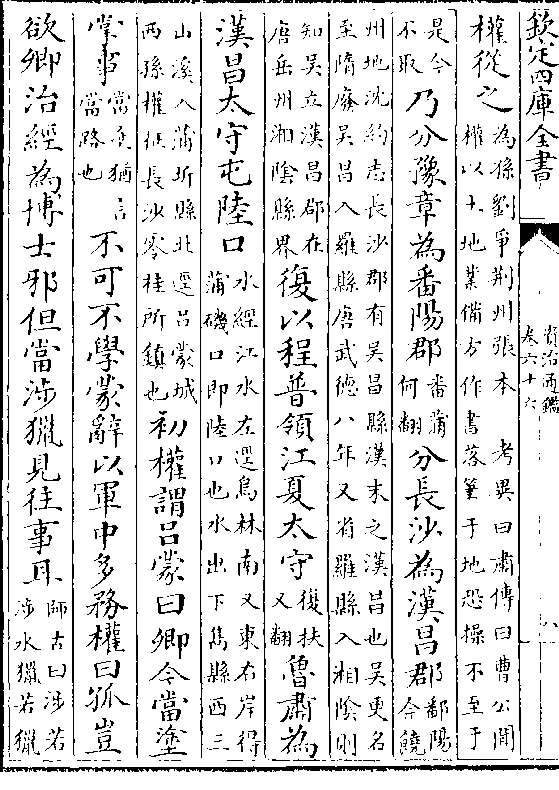 欽定四庫全書
資治通鑑
卷六十六
權從之
為孫劉爭荆州張本 考異曰肅傳曰曹公聞
權以土地業備方作書落筆于地恐操不至于
是今
不取
乃分豫章為番陽郡
番蒲
何翻
分長沙為漢昌郡
鄱陽
今饒
州地沈約志長沙郡有吳昌縣漢末之漢昌也吳更名
至隋廢吳昌入羅縣唐武德八年又省羅縣入湘隂則
知吳立漢昌郡在
唐岳州湘隂縣界
復以程普領江夏太守
復扶
又翻
魯肅為
漢昌太守屯陸口
水經江水左逕烏林南又東右岸得
蒲磯口即陸口也水出下雋縣西三
山溪入蒲圻縣北逕吕蒙城
西孫權征長沙零桂所鎮也
初權謂吕蒙曰卿今當塗
掌事
當塗猶言
當路也
不可不學蒙辭以軍中多務權曰孤豈
欲卿治經為博士邪但當涉獵見往事耳
師古曰涉若
涉水獵若獵